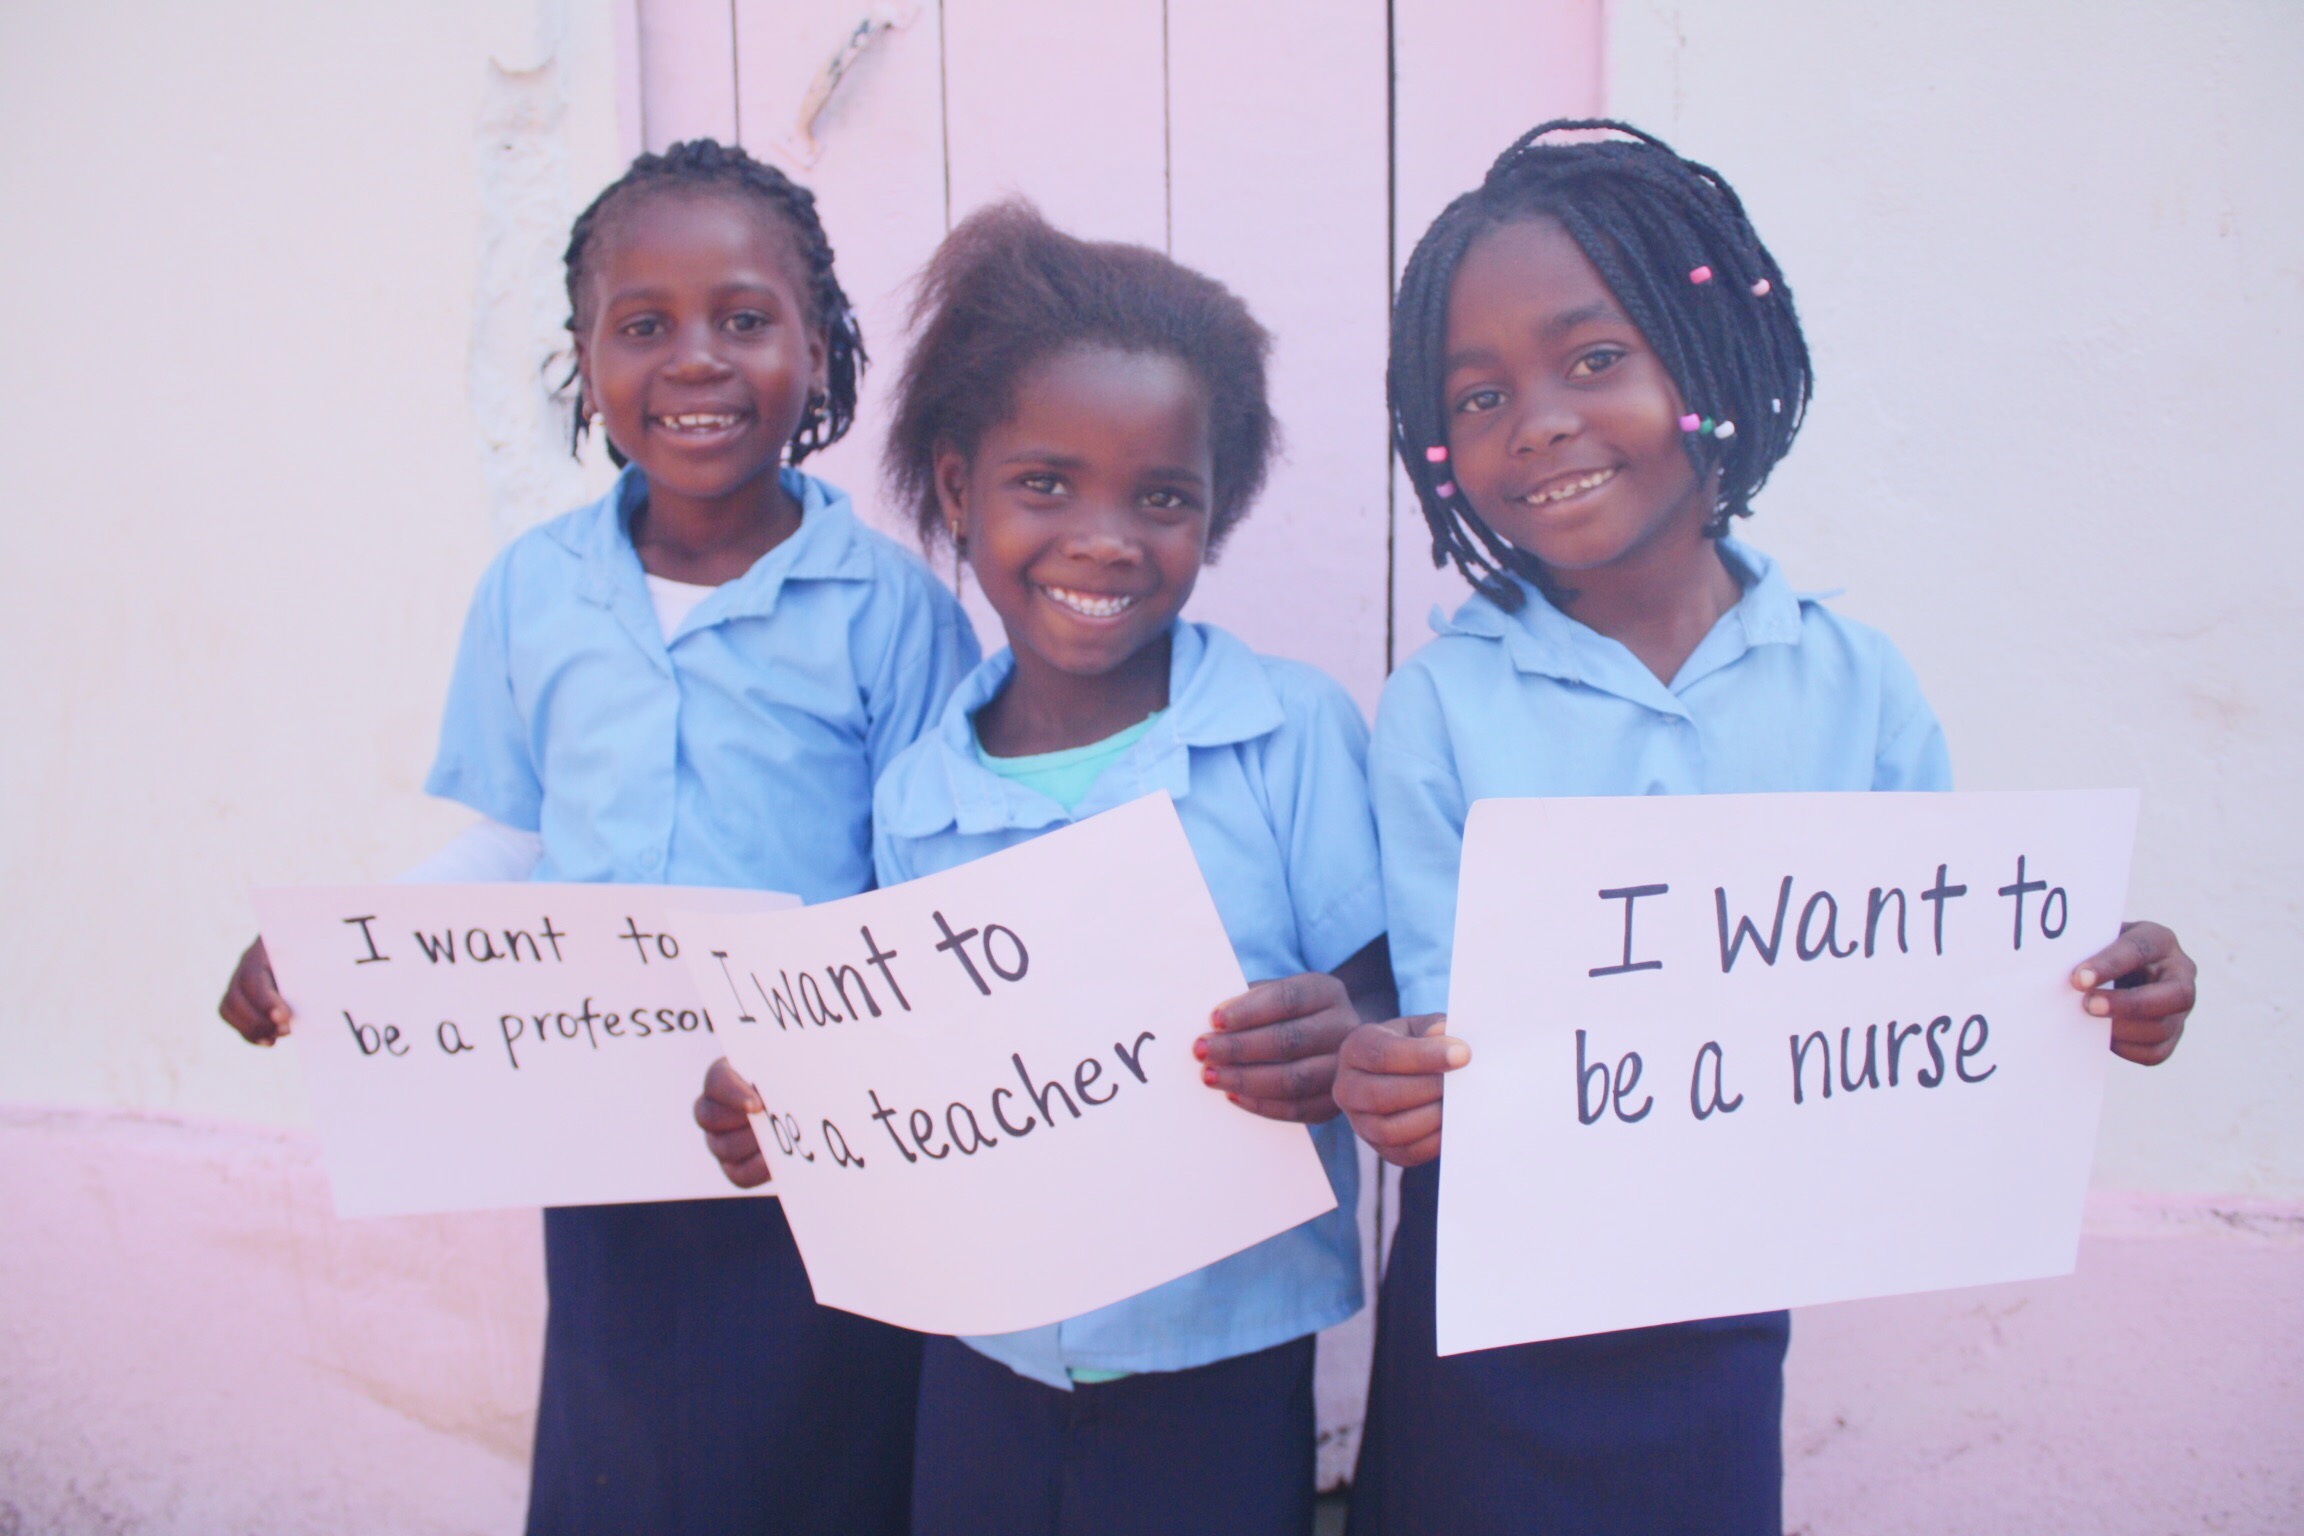 I want to
be a professor
I want to
be a teacher
I want to
be a nurse